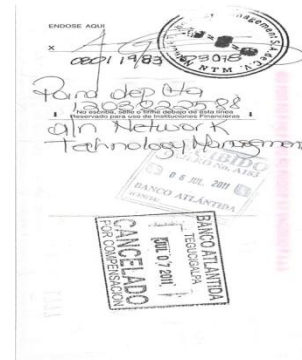 ENDOSE AQUI
x
Management S.A. de C.V.
NTM
0801 1983
Para dep Cta
No escriba, selle o firme debajo de esta linea
Reservado para uso de Instituciones Financieras
a/n Network
Technology Management
RECIBIDO
06 JUL. 2011
BANCO ATLÁNTIDA
BANCO ATLANTIDA
TEGUCIGALPA
JUL 07 2011
CANCELADO
POR COMPENSACION